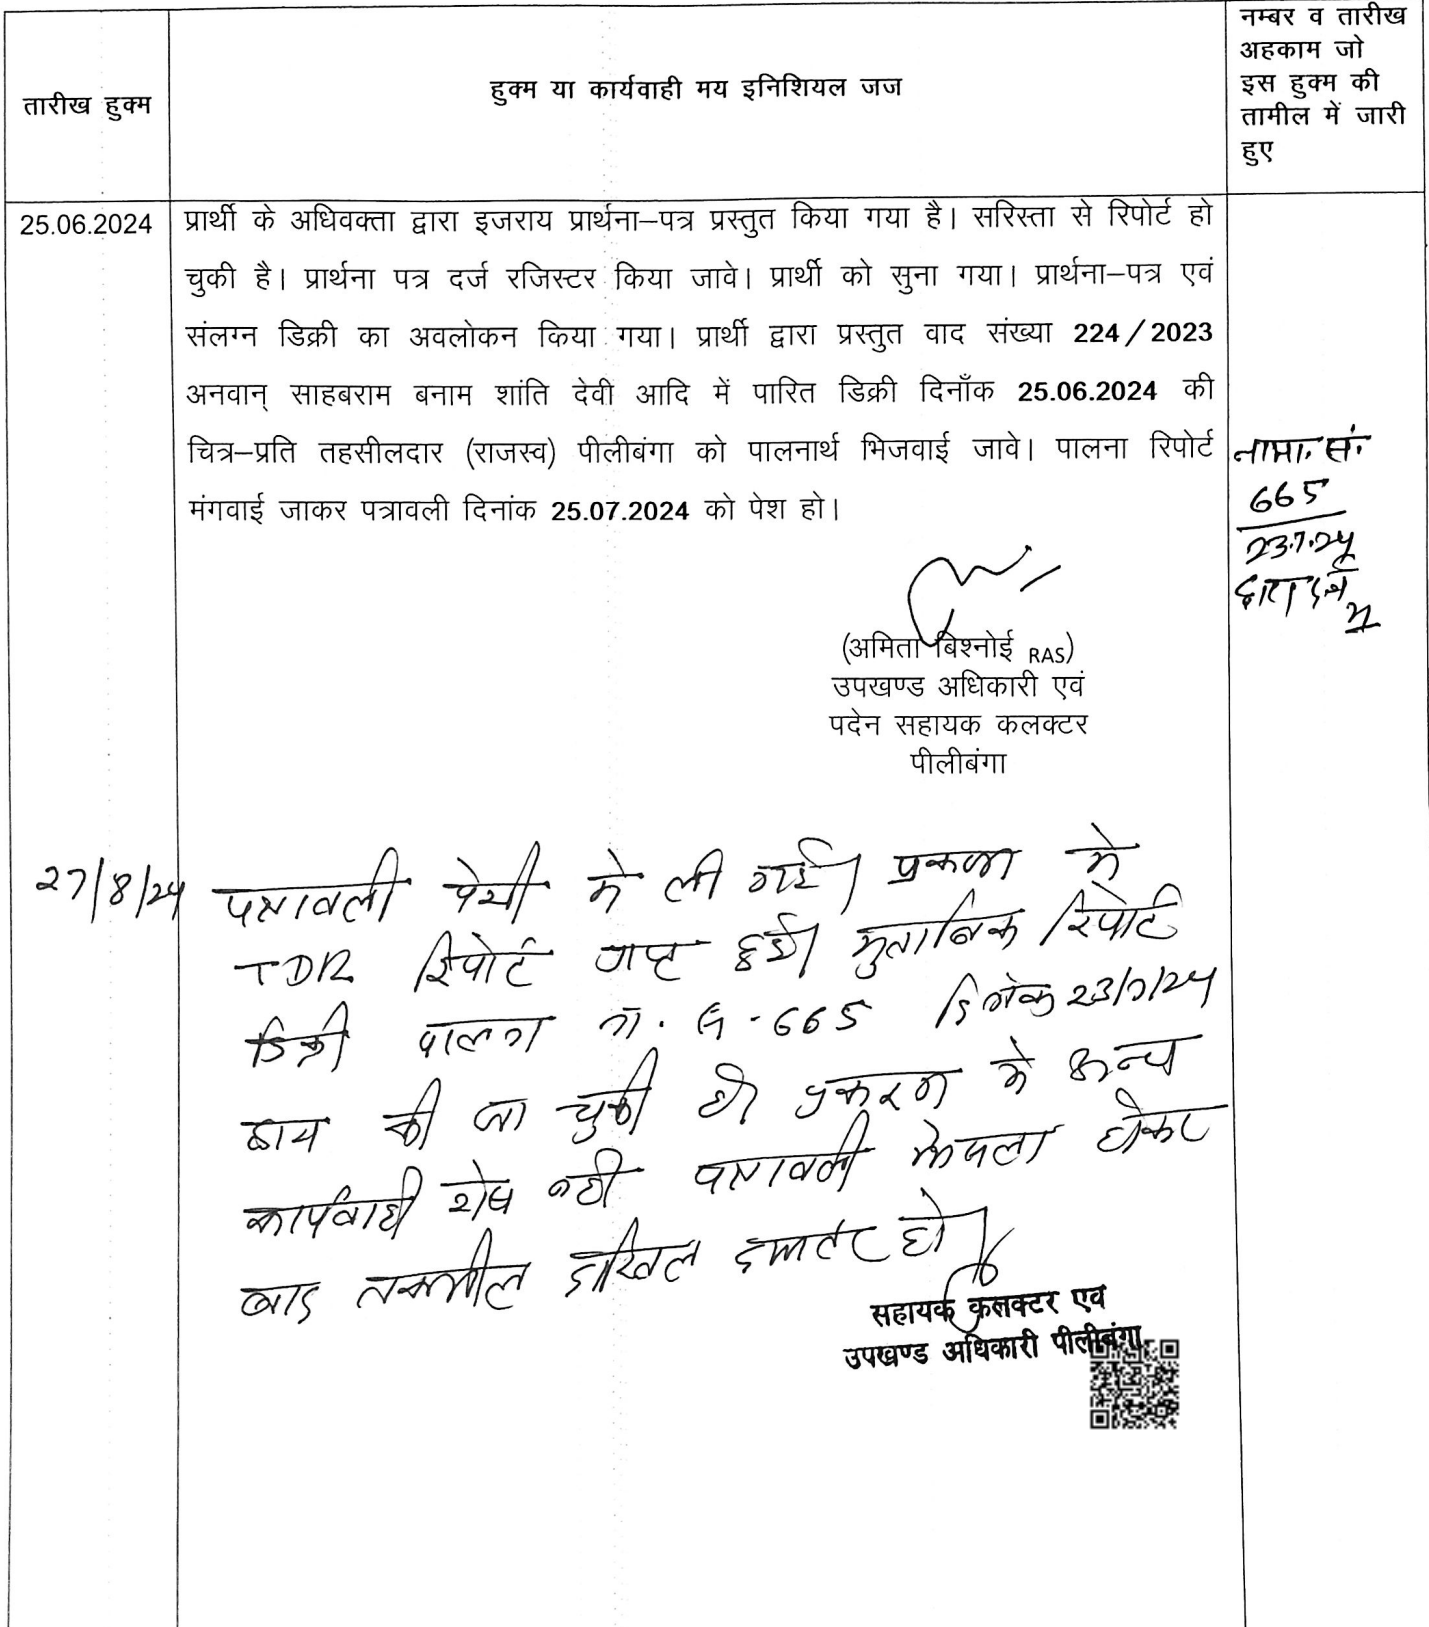 तारीख हुक्म
हुक्म या कार्यवाही मय इनिशियल जज
नम्बर व तारीख
अहकाम जो
इस हुक्म की
तामील में जारी
हुए
25.06.2024
प्रार्थी के अधिवक्ता द्वारा इजराय प्रार्थना–पत्र प्रस्तुत किया गया है। सरिस्ता से रिपोर्ट हो
चुकी है। प्रार्थना पत्र दर्ज रजिस्टर किया जावे। प्रार्थी को सुना गया। प्रार्थना–पत्र एवं
संलग्न डिक्री का अवलोकन किया गया। प्रार्थी द्वारा प्रस्तुत वाद संख्या 224/2023
अनवान् साहबराम बनाम शांति देवी आदि में पारित डिक्री दिनाँक 25.06.2024 की
चित्र–प्रति तहसीलदार (राजस्व) पीलीबंगा को पालनार्थ भिजवाई जावे। पालना रिपोर्ट
मंगवाई जाकर पत्रावली दिनांक 25.07.2024 को पेश हो।
नामा. सं.
665
23.7.24
द्वारा दर्ज
(अमिता बिश्नोई RAS)
उपखण्ड अधिकारी एवं
पदेन सहायक कलक्टर
पीलीबंगा
27/8/24
पत्रावली पेशी में ली गई। प्रकरण में
TDR रिपोर्ट प्राप्त हुई। मुताबिक रिपोर्ट
डिक्री पालना ना. सं - 665 दिनांक 23/7/24
द्वारा की जा चुकी है। प्रकरण में अन्य
कार्यवाही शेष नही पत्रावली फैसला होकर
बाद तकमील दाखिल दफ्तर हो।
सहायक कलक्टर एवं
उपखण्ड अधिकारी पीलीबंगा